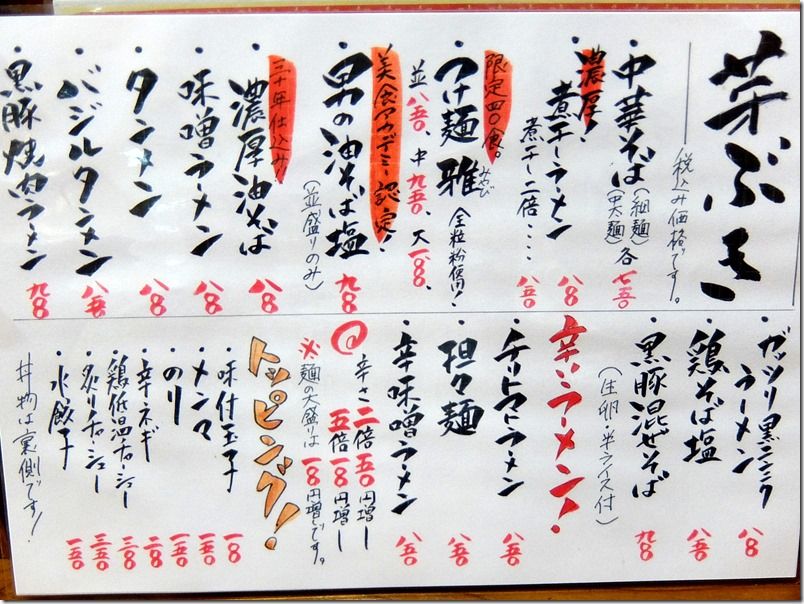 芽ぶき
税込み価格です。
・中華そば(細麺)(中太麺)各 七五〇
濃厚!
・煮干しラーメン 八〇〇
煮干し二倍‥‥ 八五〇
限定四〇食。
・つけ麺 雅 みやび 全粒粉使用!
並 八五〇、中 九五〇、大
美食アカデミー認定!
・男の油そば塩(並盛りのみ) 九〇〇
三十年仕込み
・濃厚油そば 八〇〇
・味噌ラーメン 八〇〇
・タンメン 八〇〇
・バジルタンメン 八五〇
・黒豚焼肉ラーメン 九〇〇
・ガッツリ黒ニンニクラーメン 八〇〇
・鶏そば塩 八五〇
・黒豚混ぜそば(生卵・半ライス付) 九〇〇
辛いラーメン!
・チリトマトラーメン 八五〇
・担々麺 八〇〇
・辛味噌ラーメン 八五〇
@辛さ二倍 五〇円増し
五倍 一〇〇円増し
※麺の大盛りは一〇〇円増しです。
トッピング!
・味付玉子 一〇〇
・メンマ 一五〇
・のり 一五〇
・辛ネギ 二〇〇
・鶏低温チャーシュー 三〇〇
・炙りチャーシュー 三五〇
・水餃子 一五〇
丼物は裏側です!